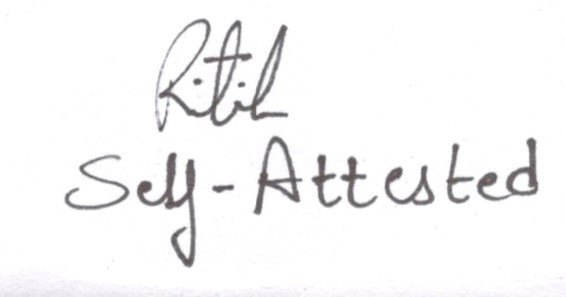 Ritik
Self-Attested